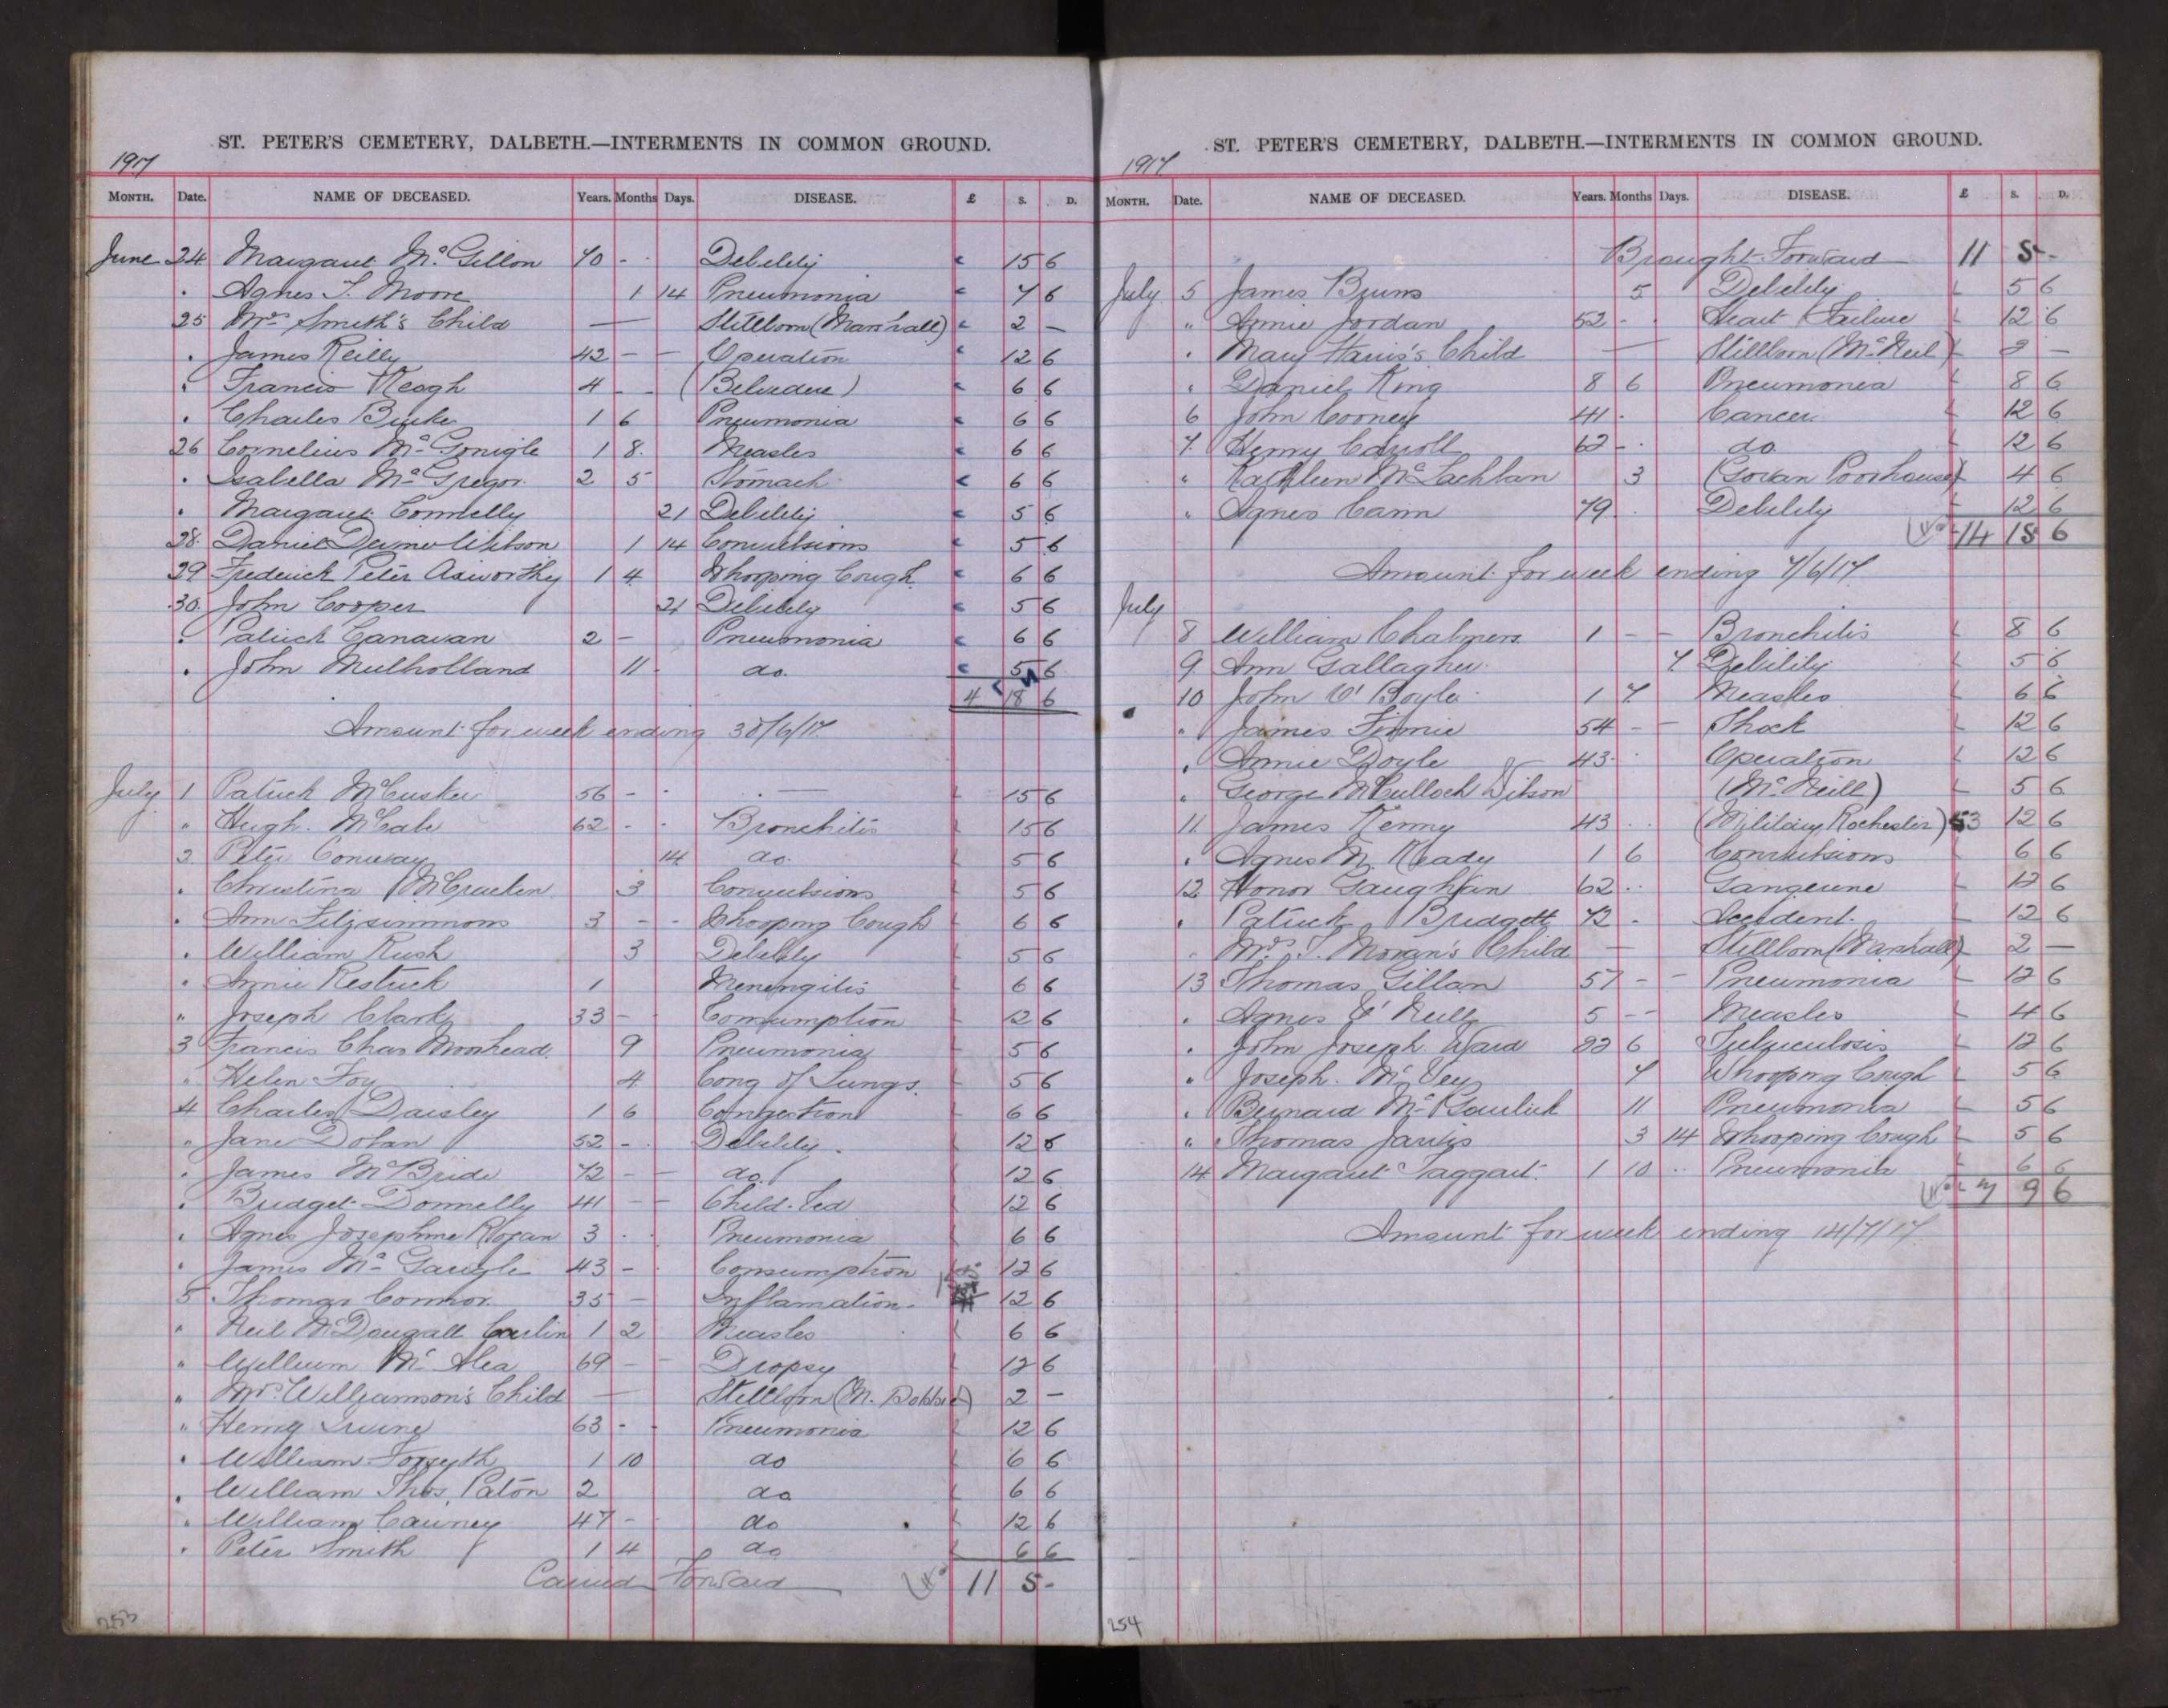 ST. PETER'S CEMETERY, DALBETH.—INTERMENTS IN COMMON GROUND.
1917
MONTH. Date. NAME OF DECEASED. Years. Months Days. DISEASE. £ S. D.
June 24 Margaret Mc Gillon 70 - - Debility 15 6
" Agnes T. Moore 1 14 Pneumonia 7 6
25 Mrs Smith's Child — Stillborn (Marshall) 2 —
" James Reilly 42 - - Operation 12 6
" Francis Keogh 4 - - (Belvedere) 6 6
" Charles Burke 1 6 Pneumonia 6 6
26 Cornelius Mc Gonigle 1 8 Measles 6 6
" Isabella Mc Gregor 2 5 Stomach 6 6
" Margaret Connelly 21 Debility 5 6
28 Daniel Wilson 1 14 Convulsions 5 6
29 Frederick Peter Axworthy 1 4 Whooping Cough 6 6
30 John Cooper 21 Debility 5 6
" Patrick Canavan 2 - Pneumonia 6 6
" John Mulholland 11 - do. 5 6
4 18 6
Amount for week ending 30/6/17
July 1 Patrick McCusker 56 - - — 15 6
" Hugh McCabe 62 - - Bronchitis 15 6
2 Peter Conway 14 do. 5 6
" Christina McCracken 3 Convulsions 5 6
" Ann Fitzsimmons 3 - - Whooping Cough 6 6
" William Rush 3 Debility 5 6
" Annie Restrick 1 Menengitis 6 6
" Joseph Clark 33 - Consumption 12 6
3 Francis Chas Moorhead 9 Pneumonia 5 6
" Helen Foy 4 Cong of Lungs. 5 6
4 Charles Daisley 1 6 Congestion 6 6
" Jane Dolan 52 - Debility. 12 6
" James McBride 72 - - do. 12 6
" Bridget Donnelly 41 - - Child-bed 12 6
" Agnes Josephine Rogan 3 - - Pneumonia 6 6
" James Mc Gaugle 43 - Consumption 12 6
5 Thomas Connor 35 - Inflamation. 12 6
" Neil McDougall Carlin 1 2 Measles 6 6
" William Mc Alea 69 - - Dropsy 12 6
" Mrs Williamson's Child — Stillborn (M. Dobbie) 2 —
" Henry Irvine 63 - - Pneumonia 12 6
" William Forsyth 1 10 do 6 6
" William Thos. Paton 2 do 6 6
" William Cauney 47 - do 12 6
" Peter Smith 1 4 do 6 6
Carried Forward 11 5 -
253
ST. PETER'S CEMETERY, DALBETH.—INTERMENTS IN COMMON GROUND.
1917
MONTH. Date. NAME OF DECEASED. Years. Months Days. DISEASE. £ S. D.
Brought Forward 11 5 -
July 5 James Burns 5 Debility 5 6
" Annie Jordan 52 - Heart Failure 12 6
" Mary Harris's Child — Stillborn (McNeil) 2 —
" Daniel King 8 6 Pneumonia 8 6
6 John Cooney 41 - Cancer. 12 6
7 Henry Carroll 62 - - do. 12 6
" Kathleen McLachlan 3 (Govan Poorhouse) 4 6
" Agnes Cann 79 Debility 12 6
14 15 6
Amount for week ending 7/6/17
July
8 William Chalmers 1 - - Bronchitis 8 6
9 Ann Gallagher 7 Debility 5 6
10 John O'Boyle 1 7 Measles 6 6
" James Finnie 54 - - Shock 12 6
" Annie Doyle 43 - Operation 12 6
" George McCulloch Wilson (McNeill) 5 6
11 James Kenny 43 - - (Military Rochester) 53 12 6
" Agnes M. Keady 1 6 Convulsions 6 6
12 Honor Gaughan 62 - - Gangerine 12 6
" Patrick Bridgett 72 - Accident. 12 6
" Mrs. T. Moran's Child — Stillborn (Marshall) 2 —
13 Thomas Gillan 57 - - Pneumonia 12 6
" Agnes O'Neill 5 - - Measles 4 6
" John Joseph Ward 22 6 Tuberculosis 12 6
" Joseph McVey 7 Whooping Cough 5 6
" Bernard Mc Garlick 11 Pneumonia 5 6
" Thomas Jarvis 3 14 Whooping Cough 5 6
14 Margaret Taggart 1 10 - Pneumonia 6 6
7 9 6
Amount for week ending 14/7/17
254